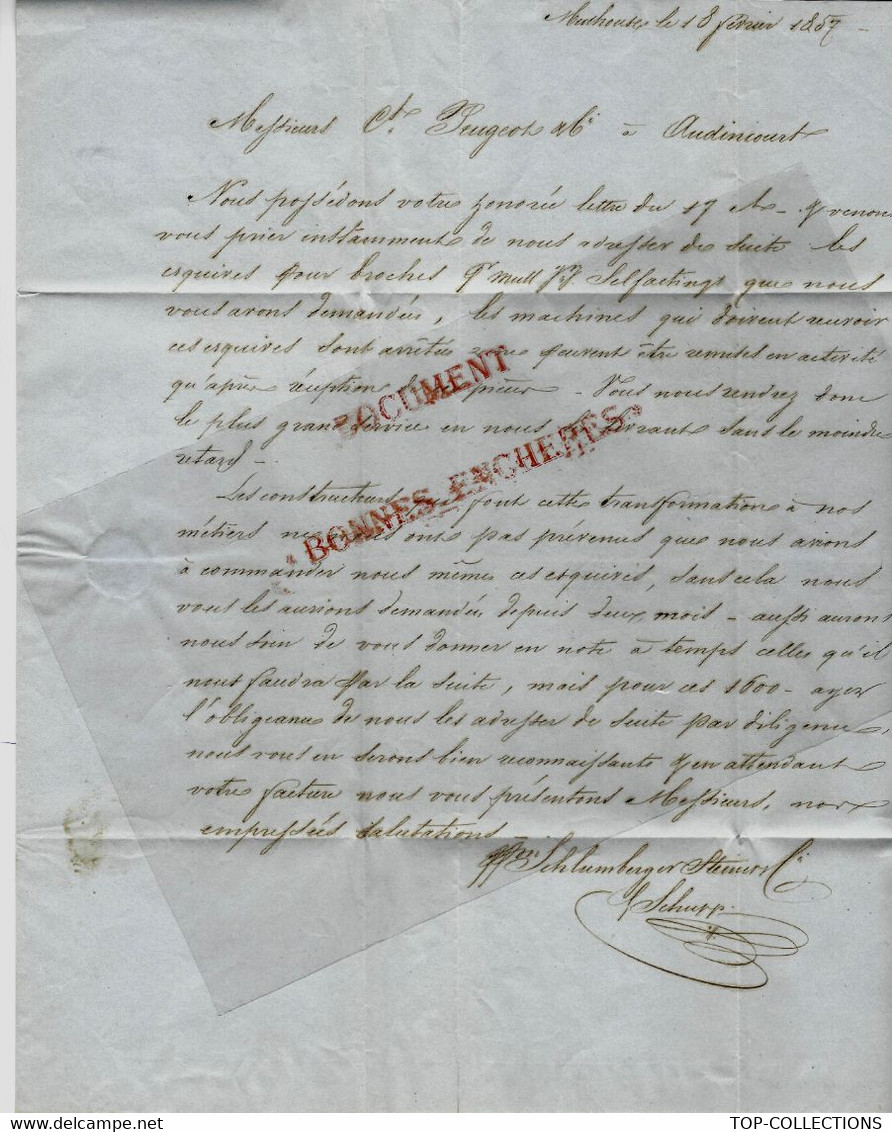 Mulhouse, le 18 février 1857
Messieurs Ct. Peugeot & Cie à Audincourt
Nous possédons votre honorée lettre du 17 ct - & venons
vous prier instamment de nous adresser de suite les
esquires pour broches pr mull Selfactings que nous
vous avons demandées, les machines qui doivent recevoir
ces esquires sont arrêtées peuvent être remises en activité
qu'après réception pièces - Vous nous rendrez donc
le plus grand service en nous sans le moindre
retard -
Les constructeurs qui font cette transformation à nos
métiers ont pas prévenus que nous avions
à commander nous mêmes ces esquires, sans cela nous
vous les aurions demandées depuis deux mois - aussi aurons
nous soin de vous donner en note à temps celles qu'il
nous faudra par la suite, mais pour ces 1600 - ayez
l'obligeance de nous les adresser de suite par diligence,
nous vous en serons bien reconnaissants & en attendant
votre facture nous vous présentons Messieurs, nos
empressées salutations -
ppon Schlumberger Steiner & Cie
Schupp
DOCUMENT
BONNES ENCHERES
TOP-COLLECTIONS